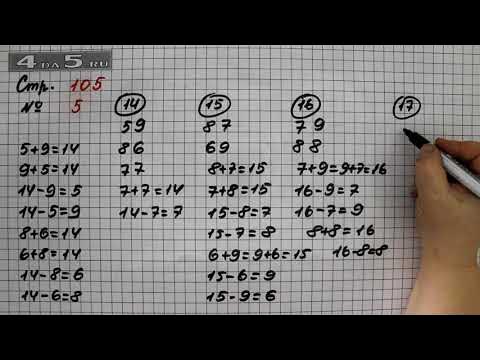 4 DA 5.RU
Стр. 105
№ 5
14 15 16 17
59 87 79
5+9=14 86 69 88
9+5=14 77 8+7=15 7+9=9+7=16
14-9=5 7+7=14 7+8=15 16-9=7
14-5=9 14-7=7 15-8=7 16-7=9
8+6=14 15-7=8 8+8=16
6+8=14 6+9=9+6=15 16-8=8
14-8=6 15-6=9
14-6=8 15-9=6